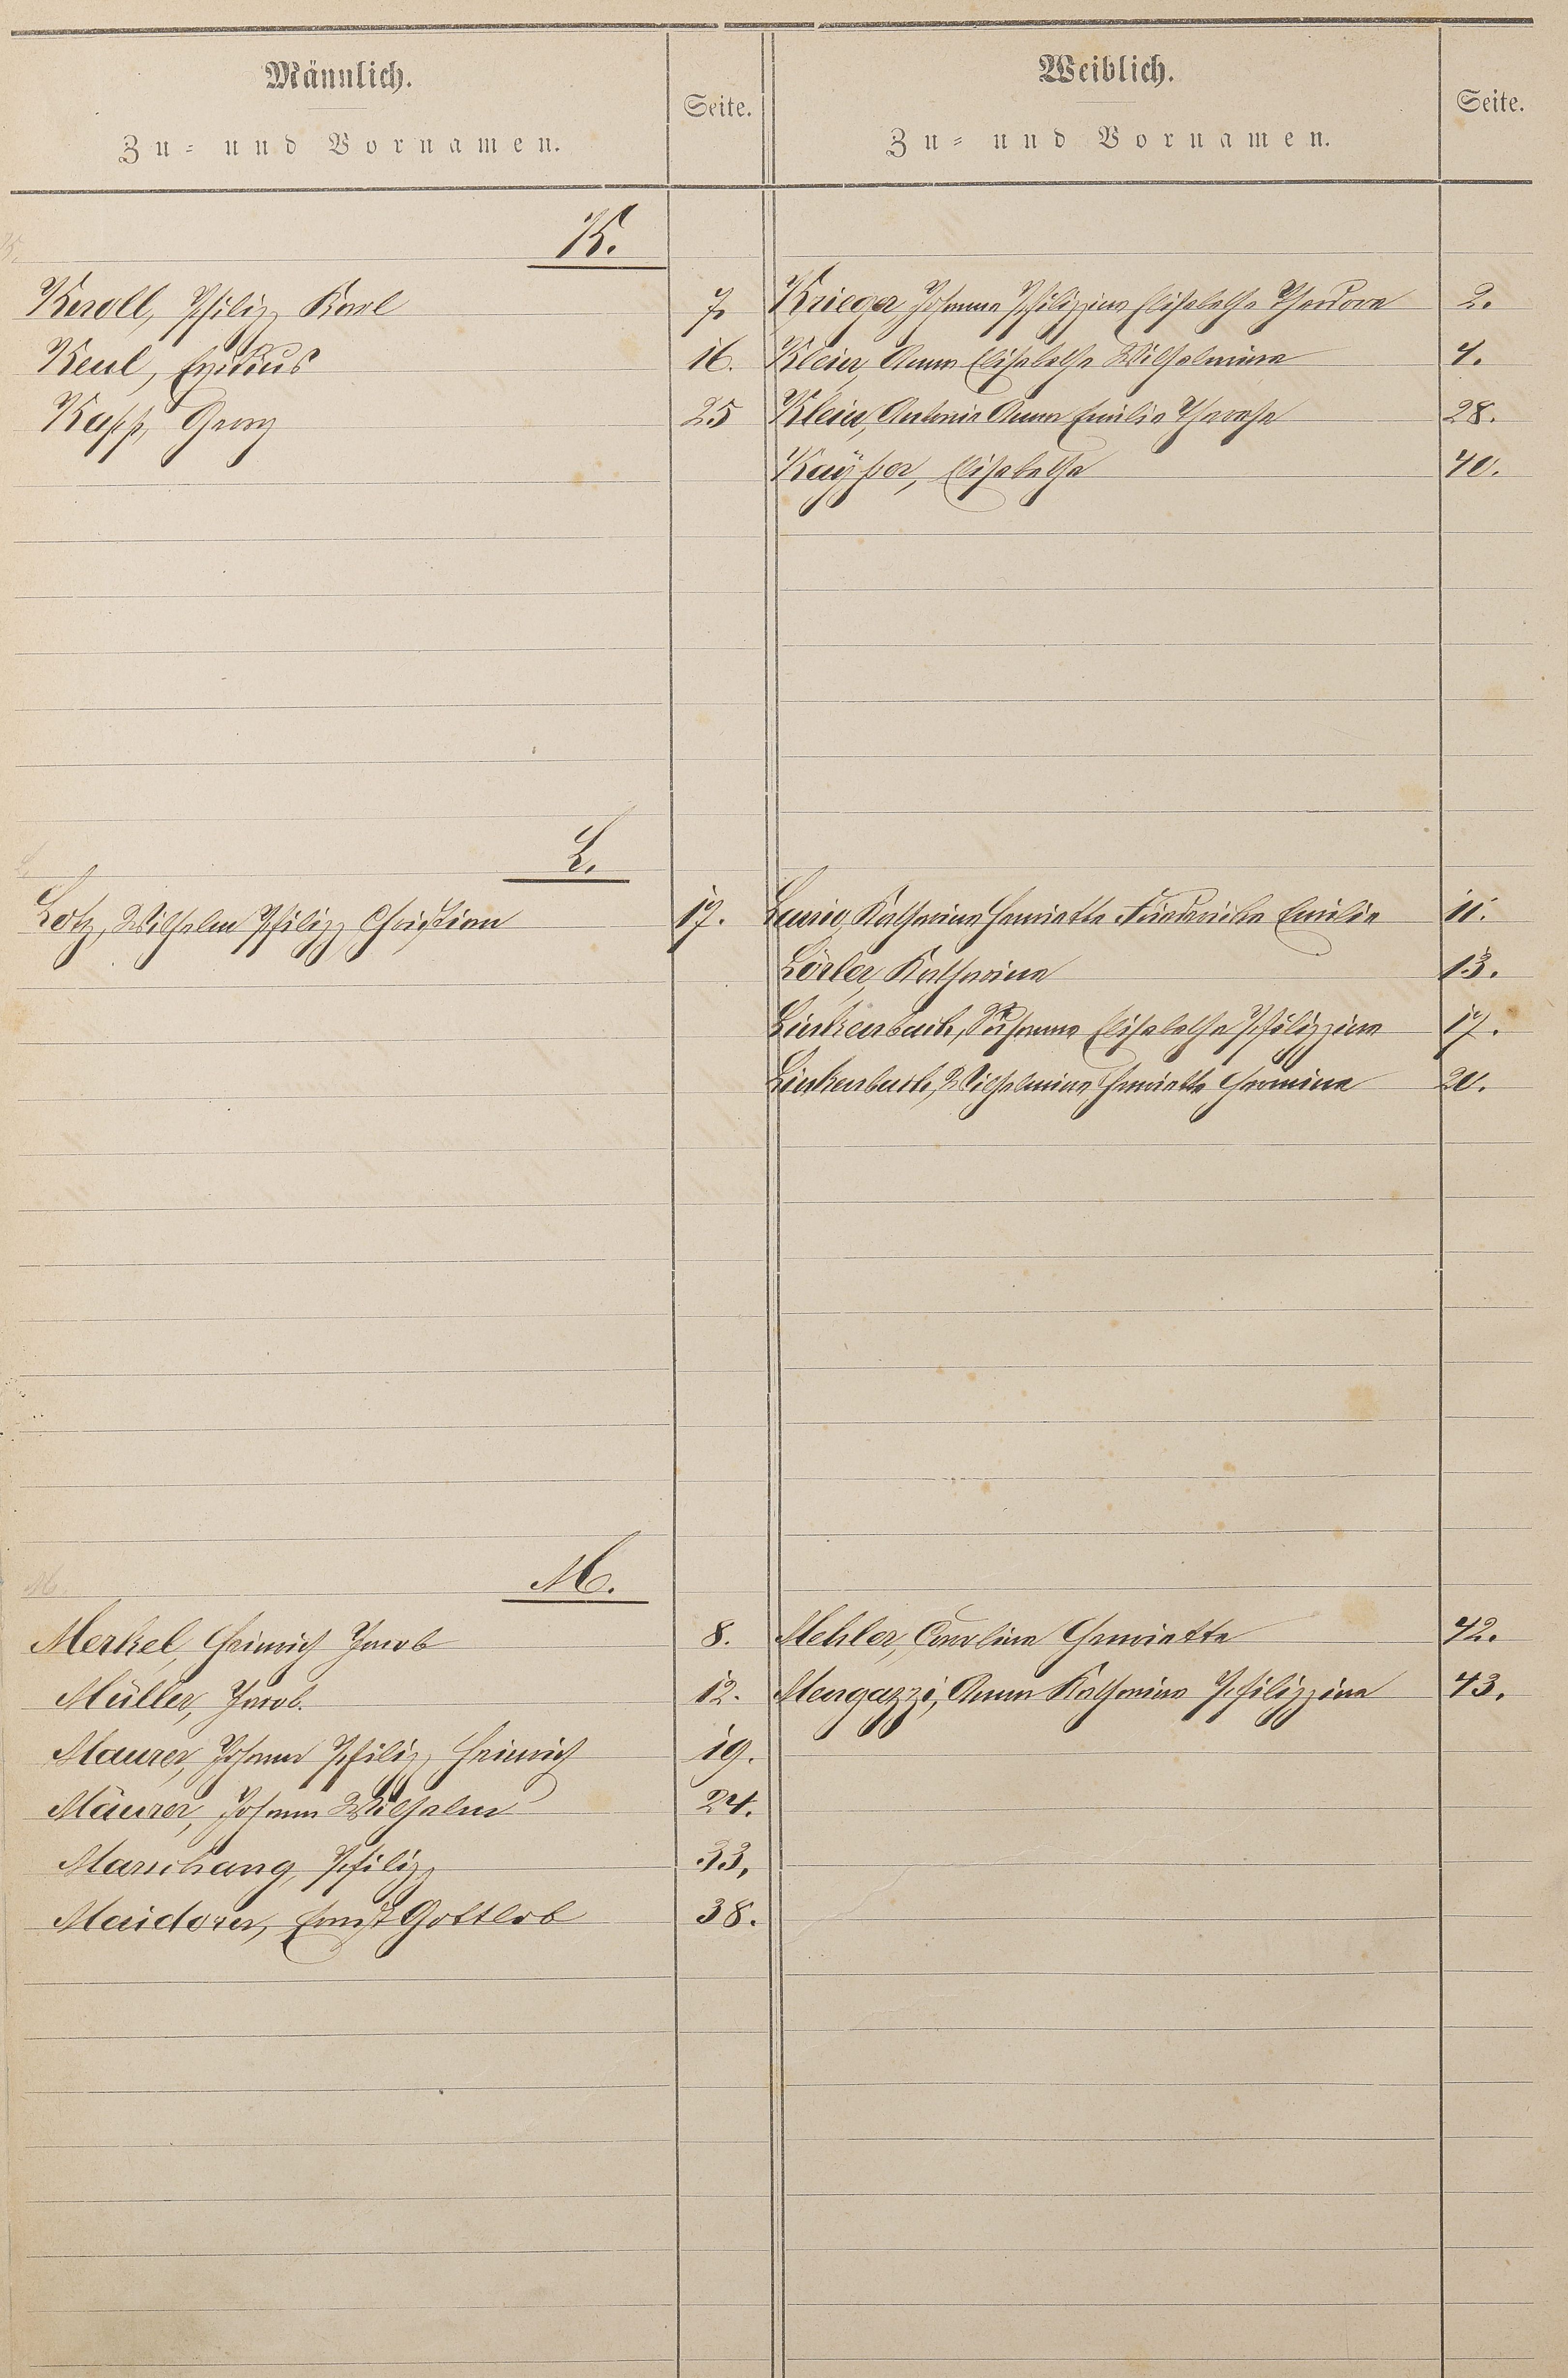 Männlich.
Zu= und Vornamen.
Seite.
Weiblich.
Zu= und Vornamen.
Seite.
K.
Keroll, Philipp Karl 7.
Keul, Emilius 16.
Kapp, Georg 25
Krieger Johanna Philippine Elisabetha Theodora 2.
Klein, Anna Elisabetha Wilhelmina 4.
Klein, Antonie Anna Emilie Therese 28.
Kaÿser, Elisabetha 40.
L.
Lotz, Wilhelm Philipp Christian 17.
Katharina Henriette Friedericke Emilie 11.
Lörler, Katharina 13.
Linkenbach, Susanna Elisabetha Philippina 17.
Linkenbach, Wilhelmine Henriette Hermine 20.
M.
Merkel, Heinrich Jacob 8.
Müller, Jacob. 12.
Maurer, Johann Philipp Heinrich 19.
Mäurer, Johann Wilhelm 24.
Marschang, Philipp 33,
Maidorer, Ernst Gottlob 38.
Mehler, Caroline Henriette 42.
Mengazzi, Anna Katharina Philippina 43.